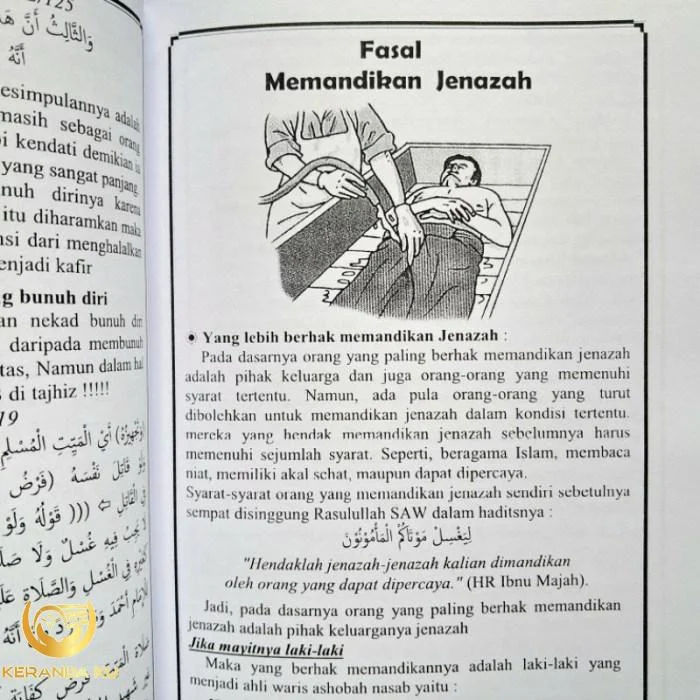 /125
وَالثَّالِثُ أَنَّ هَذَ
أَنَّهُ
esimpulannya adalah
masih sebagai orang
oi kendati demikian ini
yang sangat panjang.
unuh dirinya karena
itu diharamkan maka
nsi dari menghalalkan
enjadi kafir
g bunuh diri
an nekad bunuh diri
daripada membunuh
tas, Namun dalam hal
s di tajhiz !!!!!
19
(وَتَجْهِيْزُهُ) أَيْ الْمَيِّتِ الْمُسْلِمِ
وَلَوْ قَاتِلَ نَفْسَهُ (فَرْضُ
(((قَوْلُهُ وَلَوْ
فِيهِ غُسْلٌ وَلَا
فِي الْغُسْلِ وَالصَّلَاةِ عَلَيْ
KERANDA KU
Fasal
Memandikan Jenazah
Yang lebih berhak memandikan Jenazah :
Pada dasarnya orang yang paling berhak memandikan jenazah
adalah pihak keluarga dan juga orang-orang yang memenuhi
syarat tertentu. Namun, ada pula orang-orang yang turut
dibolehkan untuk memandikan jenazah dalam kondisi tertentu.
mereka yang hendak memandikan jenazah sebelumnya harus
memenuhi sejumlah syarat. Seperti, beragama Islam, membaca
niat, memiliki akal sehat, maupun dapat dipercaya.
Syarat-syarat orang yang memandikan jenazah sendiri sebetulnya
sempat disinggung Rasulullah SAW dalam haditsnya :
لِيَغْسِلْ مَوْتَاكُمُ الْمَأْمُوْنُوْنَ
"Hendaklah jenazah-jenazah kalian dimandikan
oleh orang yang dapat dipercaya." (HR Ibnu Majah).
Jadi, pada dasarnya orang yang paling berhak memandikan
jenazah adalah pihak keluarganya jenazah
Jika mayitnya laki-laki
Maka yang berhak memandikannya adalah laki-laki yang
menjadi ahli waris ashobah nasab yaitu :